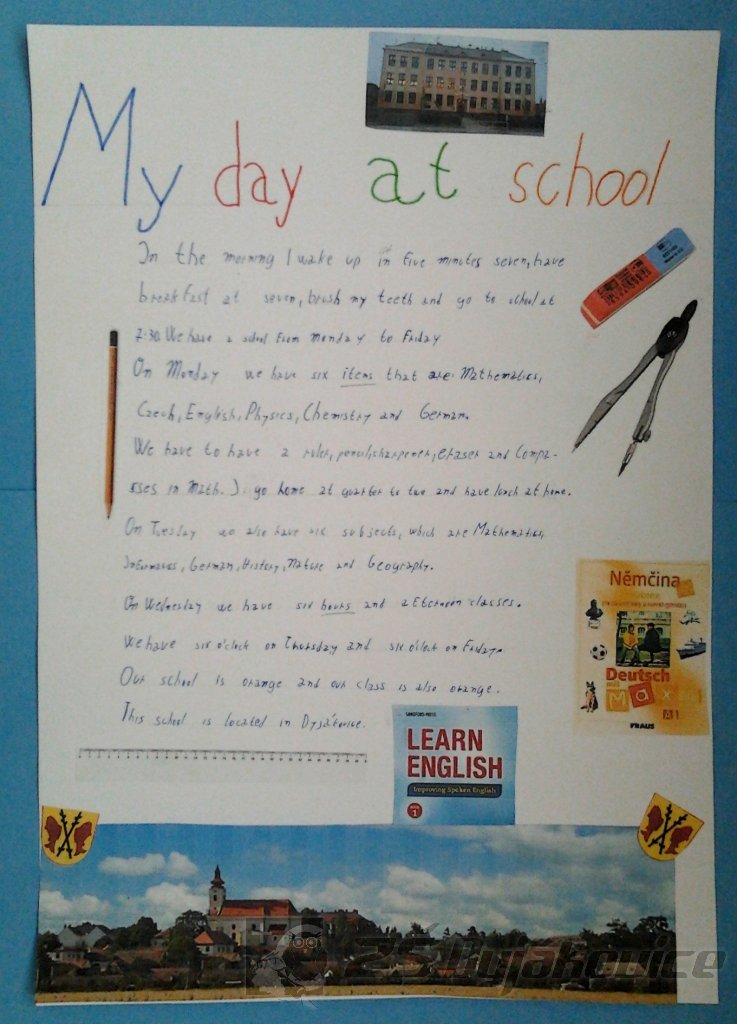 My day at school
In the morning I wake up in five minutes seven, have
breakfast at seven, brush my teeth and go to school at
7:30. We have a school from monday to Friday
On Monday we have six items that are: Mathematics,
Czech, English, Physics, Chemistry and German.
We have to have a ruler, pencil, sharpener, eraser and Compa-
sses in Math. I go home at quarter to two and have lunch at home.
On Tuesday we also have six subjects, which are Mathematics,
Informatics, German, History, Nature and Geography.
On Wednesday we have six hours and afternoon classes.
We have six o'clock on Thursday and six o'clock on Friday.
Our school is orange and our class is also orange.
This school is located in Dyjákovice.
Němčina
Deutsch
mit
Max
A1
FRAUS
LEARN
ENGLISH
Improving Spoken English
1
ZŠ Dyjákovice